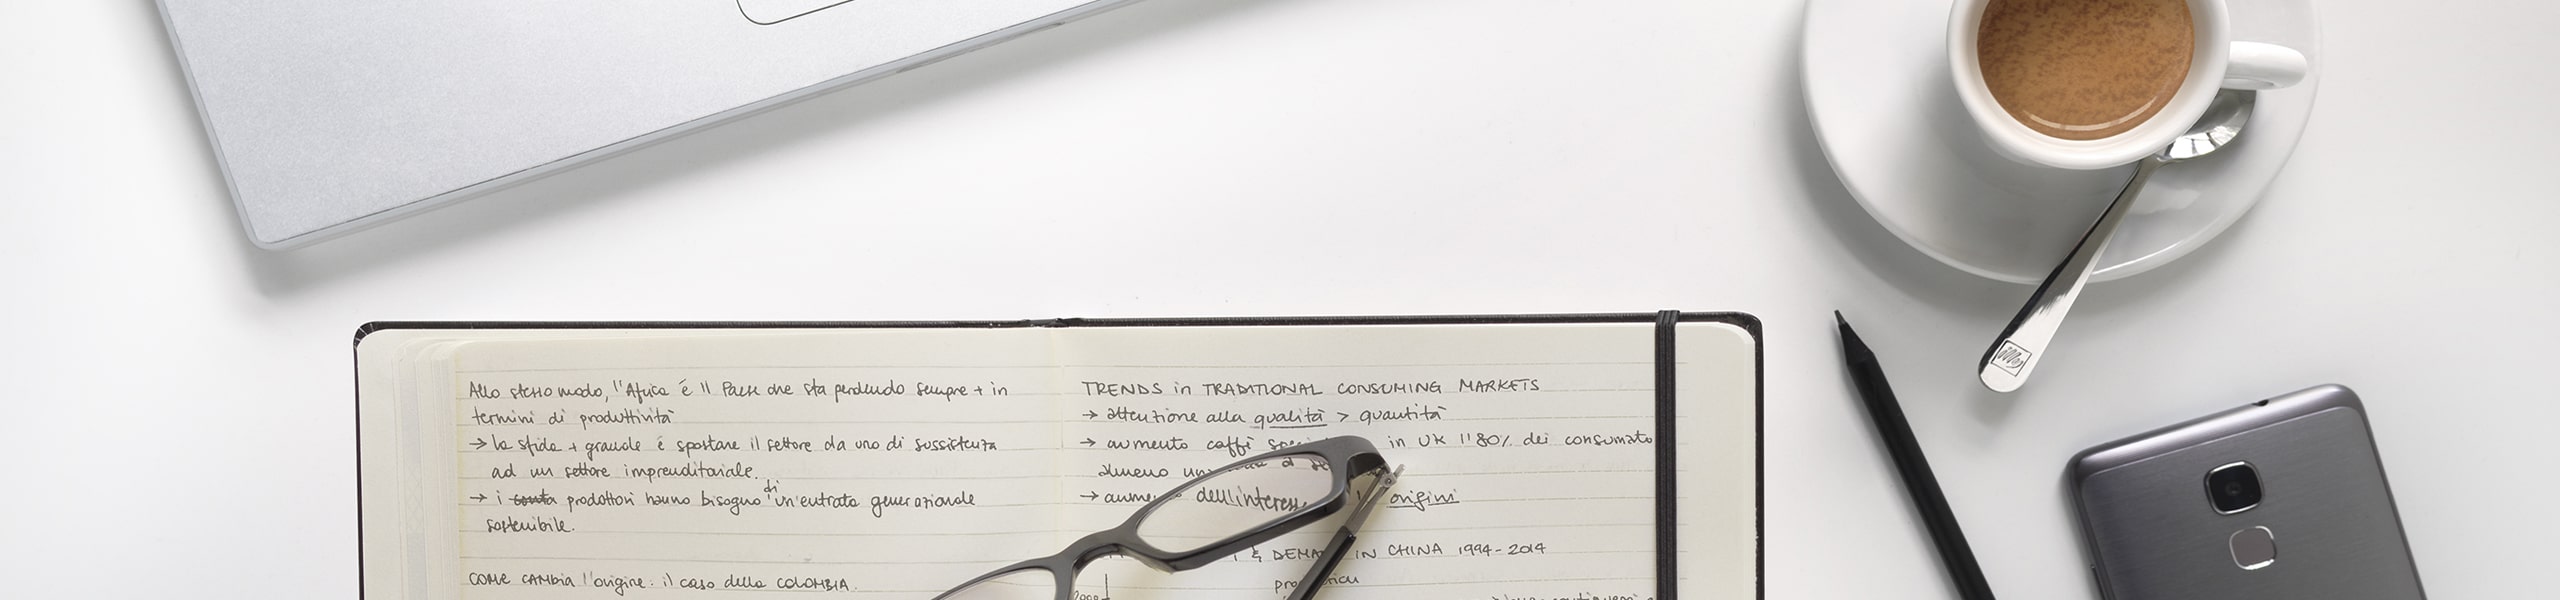 Allo stesso modo, l'Africa é il Paese che sta perdendo sempre + in
termini di produttività
→ la sfida + grande é spostare il settore da uno di sussistenza
ad un settore imprenditoriale.
→ i prodottori hanno bisogno di un'entrata generazionale
sostenibile.
COME CAMBIA l'origine: il caso della COLOMBIA.
TRENDS in TRADITIONAL CONSUMING MARKETS
→ attenzione alla qualità > quantità
→ aumento caffè in UK l'80% dei consumato
almeno
→ dell'interesse origini
& IN CHINA 1994-2014